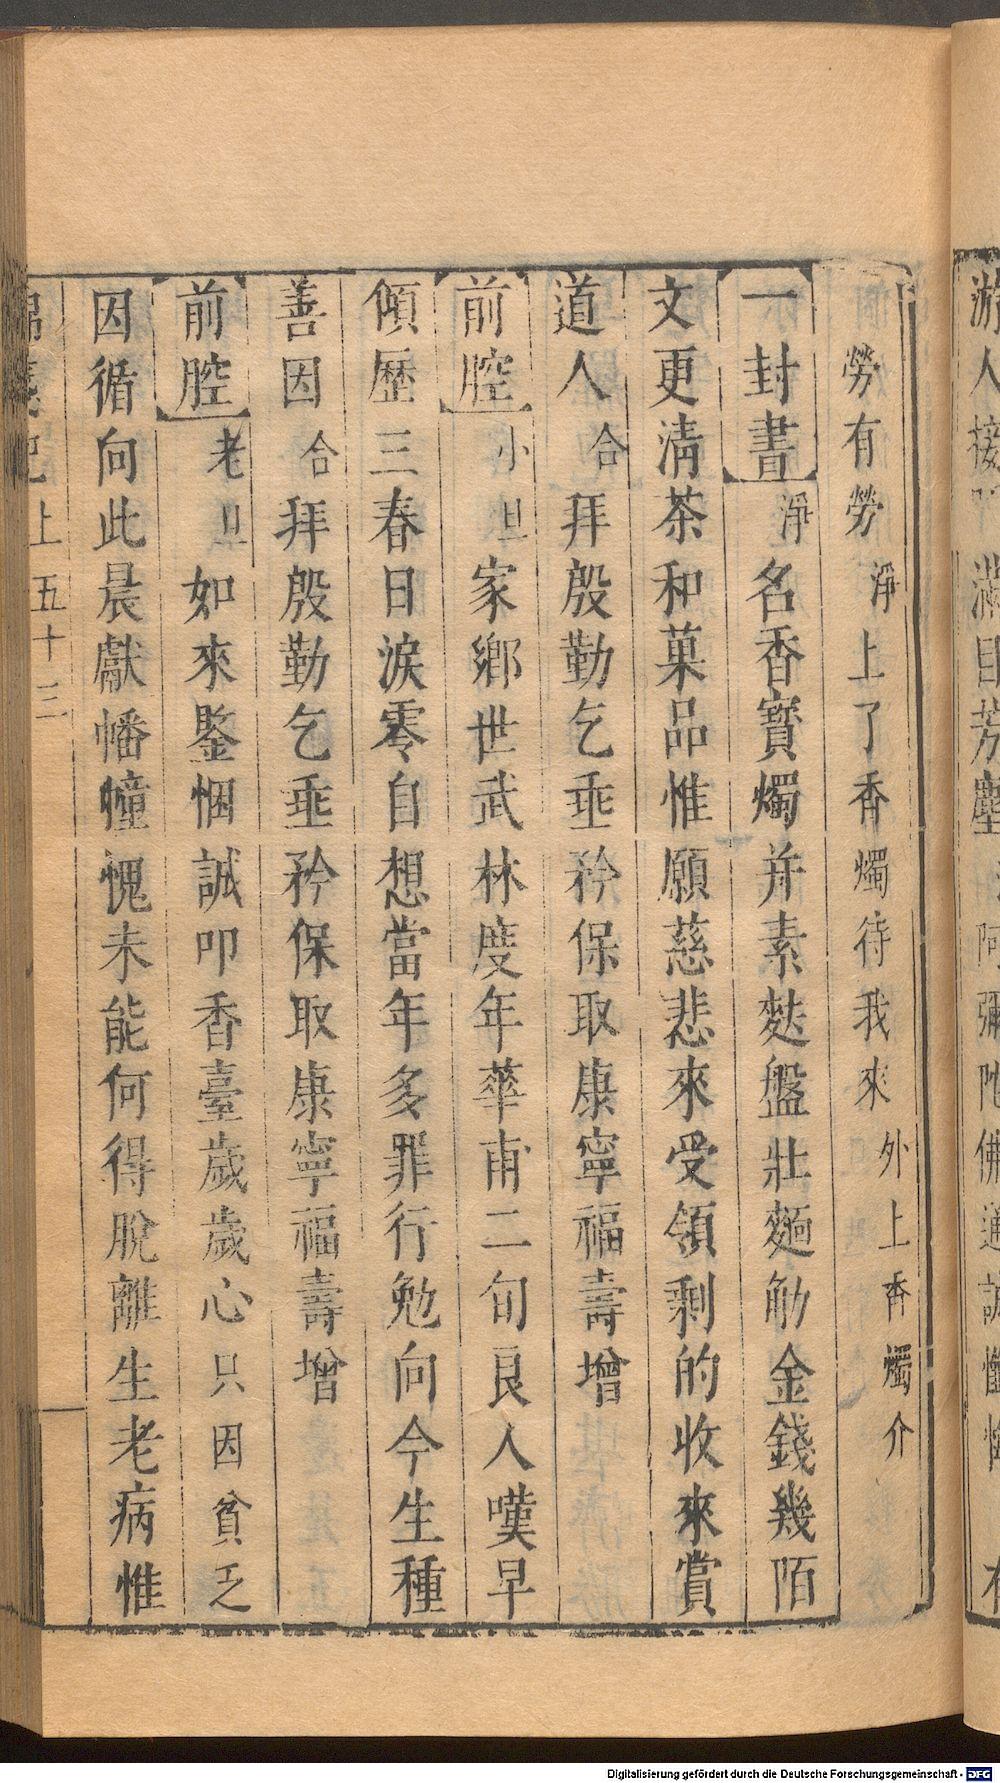 勞有勞淨上了香燭待我來外上香燭介
一封書淨名香寶燭并素麩盤壯麵觔金錢幾陌
文更清茶和菓品惟願慈悲來受領剩的收來賞
道人合拜殷勤乞垂矜保取康寧福壽增
前腔小旦家鄉世武林度年華甫二旬良人嘆早
傾歷三春日淚零自想當年多罪行勉向今生種
善因合拜殷勤乞垂矜保取康寧福壽增
前腔老旦如來鑒悃誠叩香臺歲歲心只因貧乏
因循向此晨獻幡幢愧未能何得脫離生老病惟
上 五十三
游人接
滿目芳塵
阿彌陀佛通誠懺悔
Digitalisierung gefördert durch die Deutsche Forschungsgemeinschaft - DFG